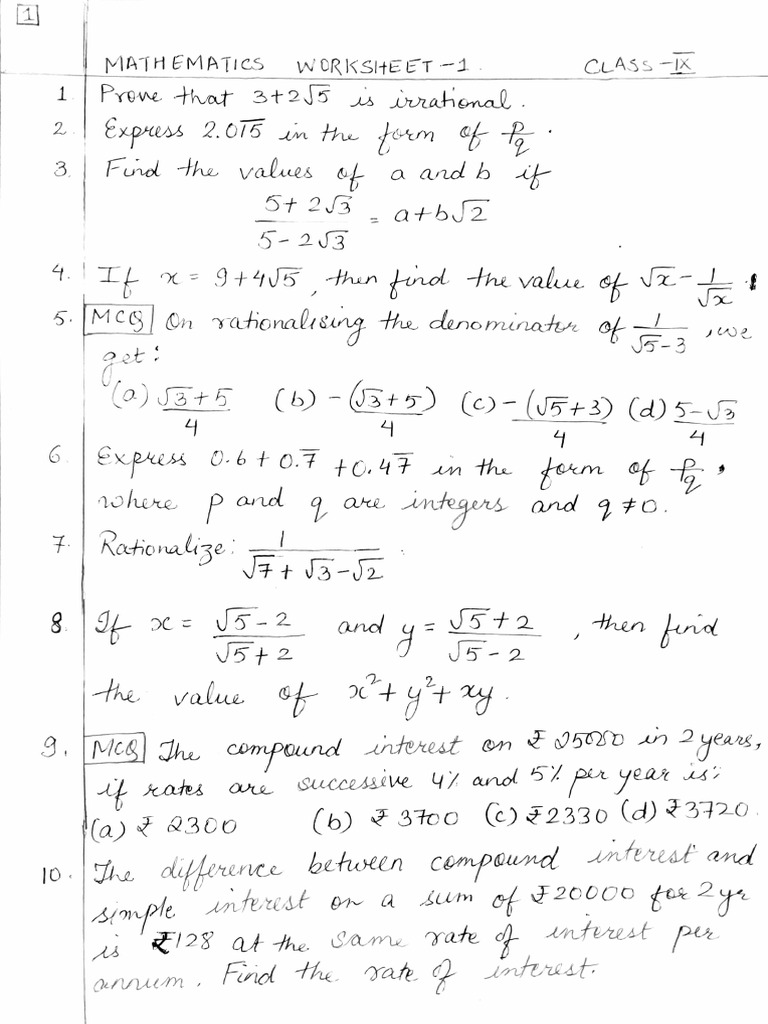 1
MATHEMATICS WORKSHEET-1. CLASS-IX
1. Prove that 3+2√5 is irrational.
2. Express 2.0̅1̅5̅ in the form of p/q.
3. Find the values of a and b if
(5+2√3)/(5-2√3) = a+b√2
4. If x = 9+4√5, then find the value of √x - 1/√x.
5. MCQ On rationalising the denominator of 1/(√5-3), we
get:
(a) (√3+5)/4 (b) -(√3+5)/4 (c) -(√5+3)/4 (d) (5-√3)/4
6. Express 0.6+0.7̅+0.47̅ in the form of p/q,
where p and q are integers and q≠0.
7. Rationalize: 1/(√7+√3-√2)
8. If x = (√5-2)/(√5+2) and y = (√5+2)/(√5-2), then find
the value of x²+y²+xy.
9. MCQ The compound interest on ₹ in 2 years,
if rates are successive 4% and 5% per year is:
(a) ₹ 2300 (b) ₹ 3700 (c) ₹2330 (d) ₹3720.
10. The difference between compound interest and
simple interest on a sum of ₹20000 for 2 yr
is ₹128 at the same rate of interest per
annum. Find the rate of interest.